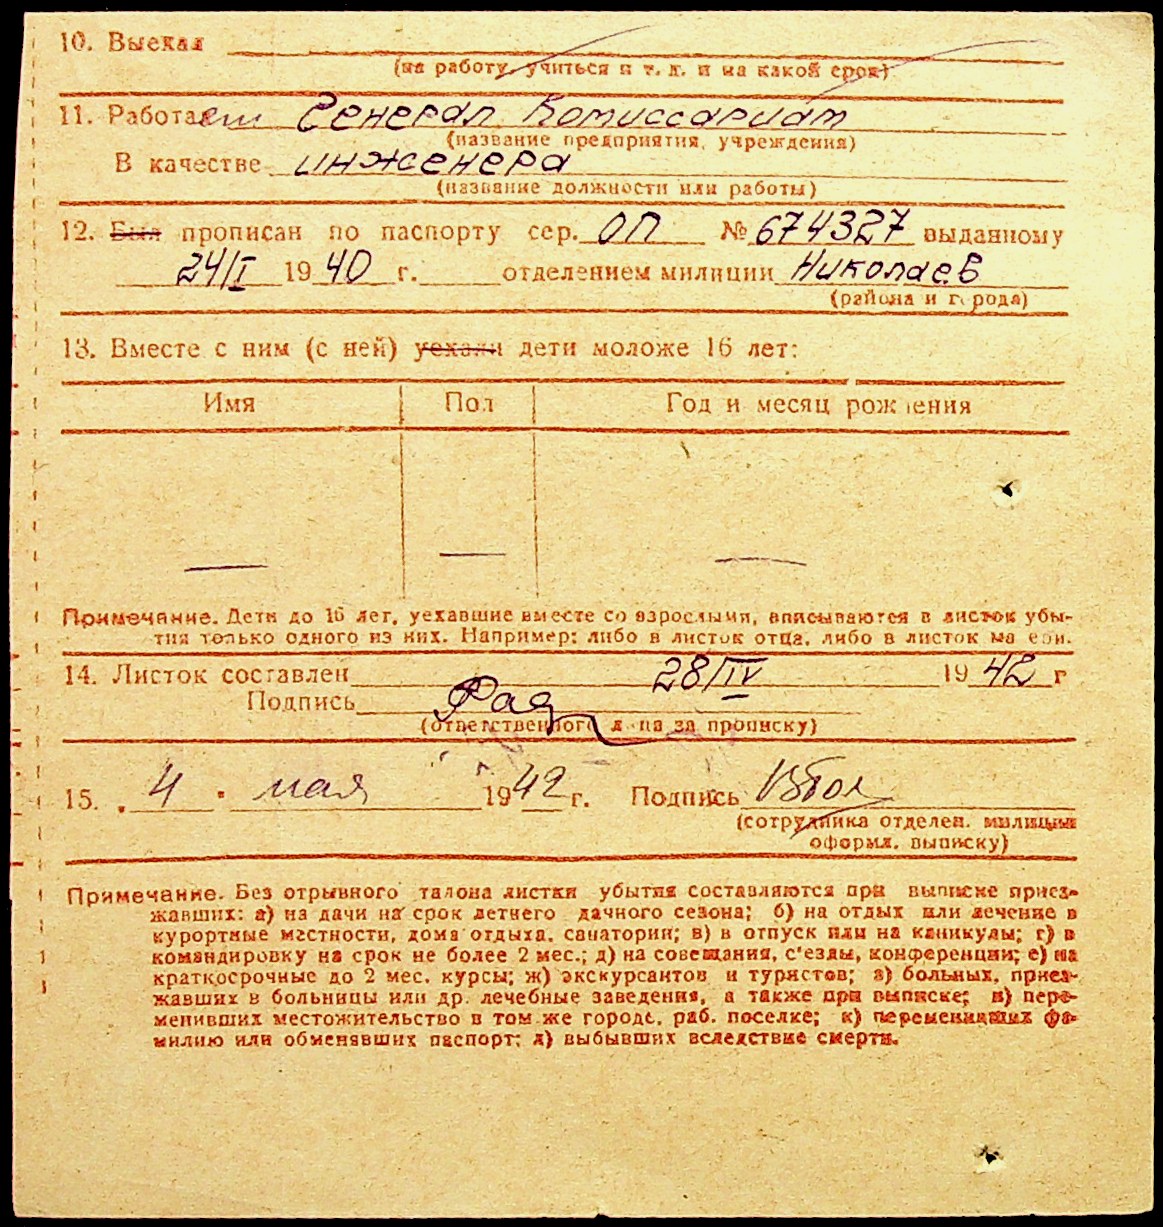 10. Выехал
(на работу, учиться и т. д. и на какой срок)
11. Работает Генерал Комиссариат
(название предприятия, учреждения)
В качестве инженера
(название должности или работы)
12. Был прописан по паспорту сер. ОП № 674327 выданному
24/I 1940 г. отделением милиции Николаев
(района и города)
13. Вместе с ним (с ней) уехали дети моложе 16 лет:
Имя Пол Год и месяц рождения
— — —
Примечание. Дети до 16 лет, уехавшие вместе со взрослыми, вписываются в листок убы-
тия только одного из них. Например: либо в листок отца, либо в листок матери.
14. Листок составлен 28/IV 1942 г
Подпись
(ответственного лица за прописку)
15. „4 " мая 1942 г. Подпись
(сотрудника отделен. милиции
оформл. выписку)
Примечание. Без отрывного талона листки убытия составляются при выписке приез-
жавших: а) на дачи на срок летнего дачного сезона; б) на отдых или лечение в
курортные местности, дома отдыха, санатории; в) в отпуск или на каникулы; г) в
командировку на срок не более 2 мес.; д) на совещания, с'езды, конференции; е) на
краткосрочные до 2 мес. курсы; ж) экскурсантов и туристов; з) больных, приез-
жавших в больницы или др. лечебные заведения, а также при выписке; и) пере-
менивших местожительство в том же городе, раб. поселке; к) переменивших фа-
милию или обменявших паспорт; л) выбывших вследствие смерти.